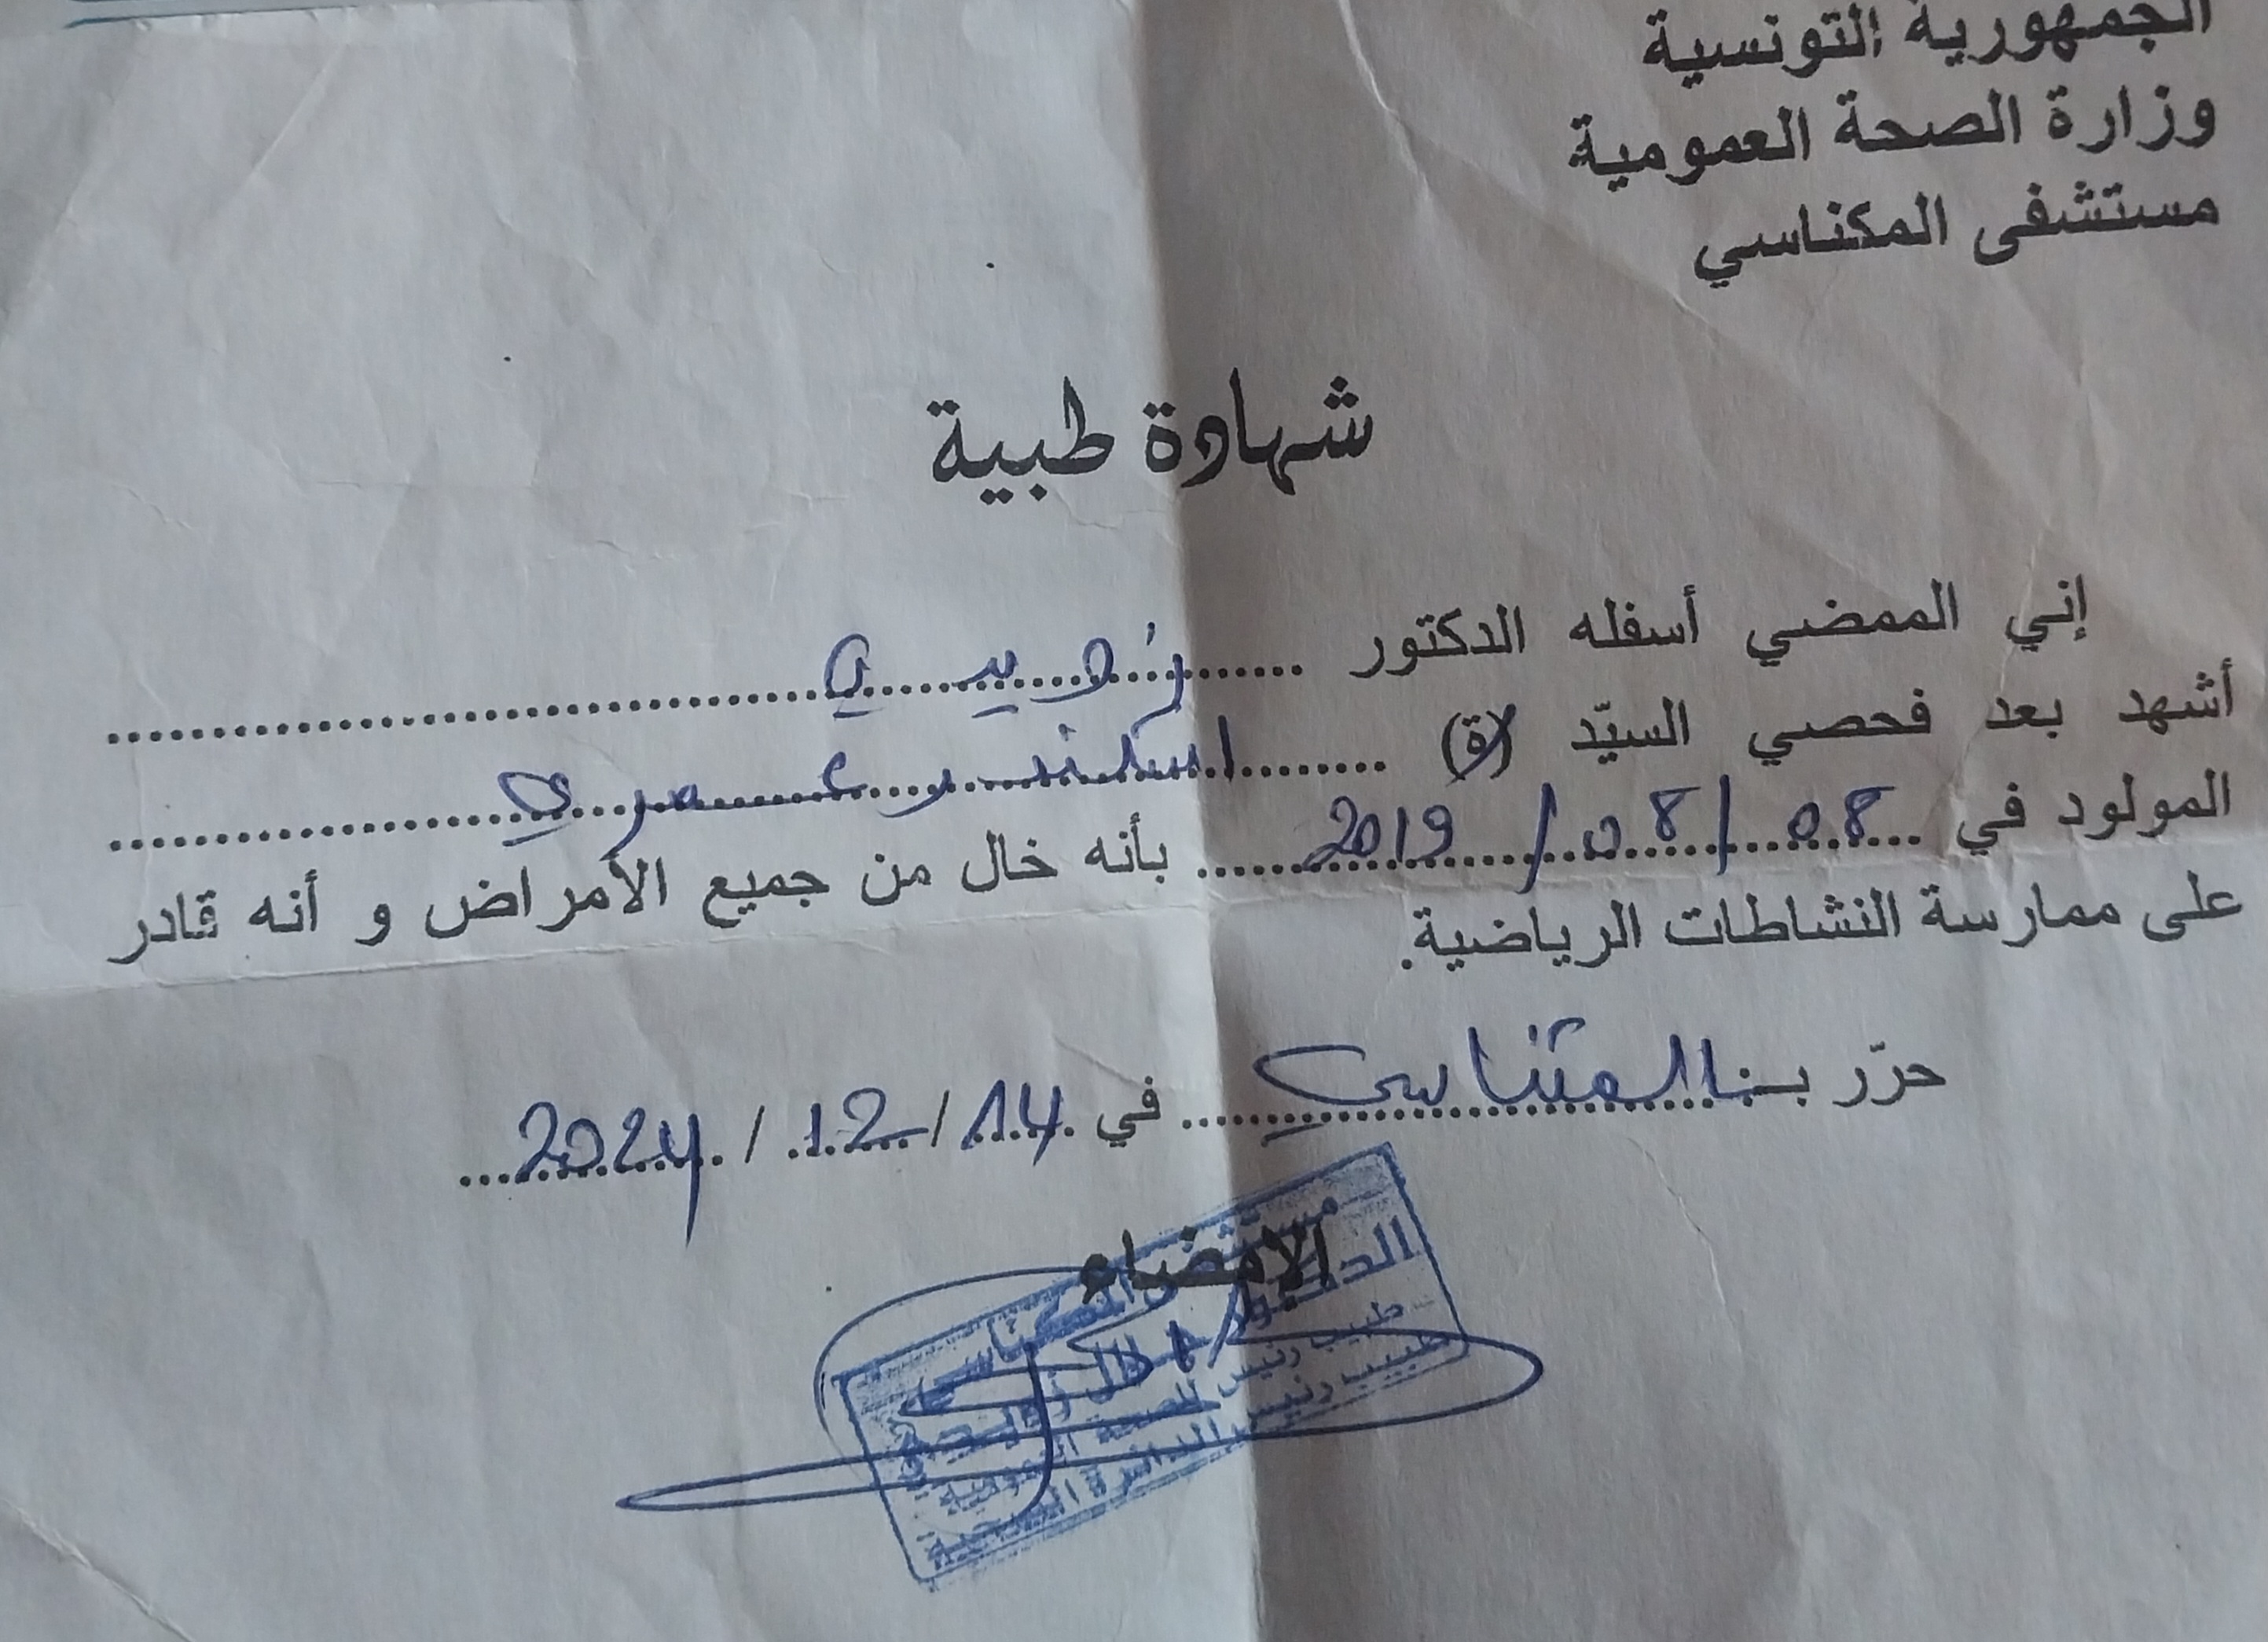 الجمهورية التونسية
وزارة الصحة العمومية
مستشفى المكناسي
شهادة طبية
إني الممضي أسفله الدكتور ..........
أشهد بعد فحصي السيّد (ة) .......... اسكندر عمري ..........
المولود في 08/08/2019 بأنه خال من جميع الأمراض و أنه قادر
على ممارسة النشاطات الرياضية.
حرّر بـ المكناسي في 14/12/2024
الإمضاء
مستشفى المكناسي
الدكتور
طبيب رئيس للصحة العمومية
طبيب رئيس الدائرة الصحية